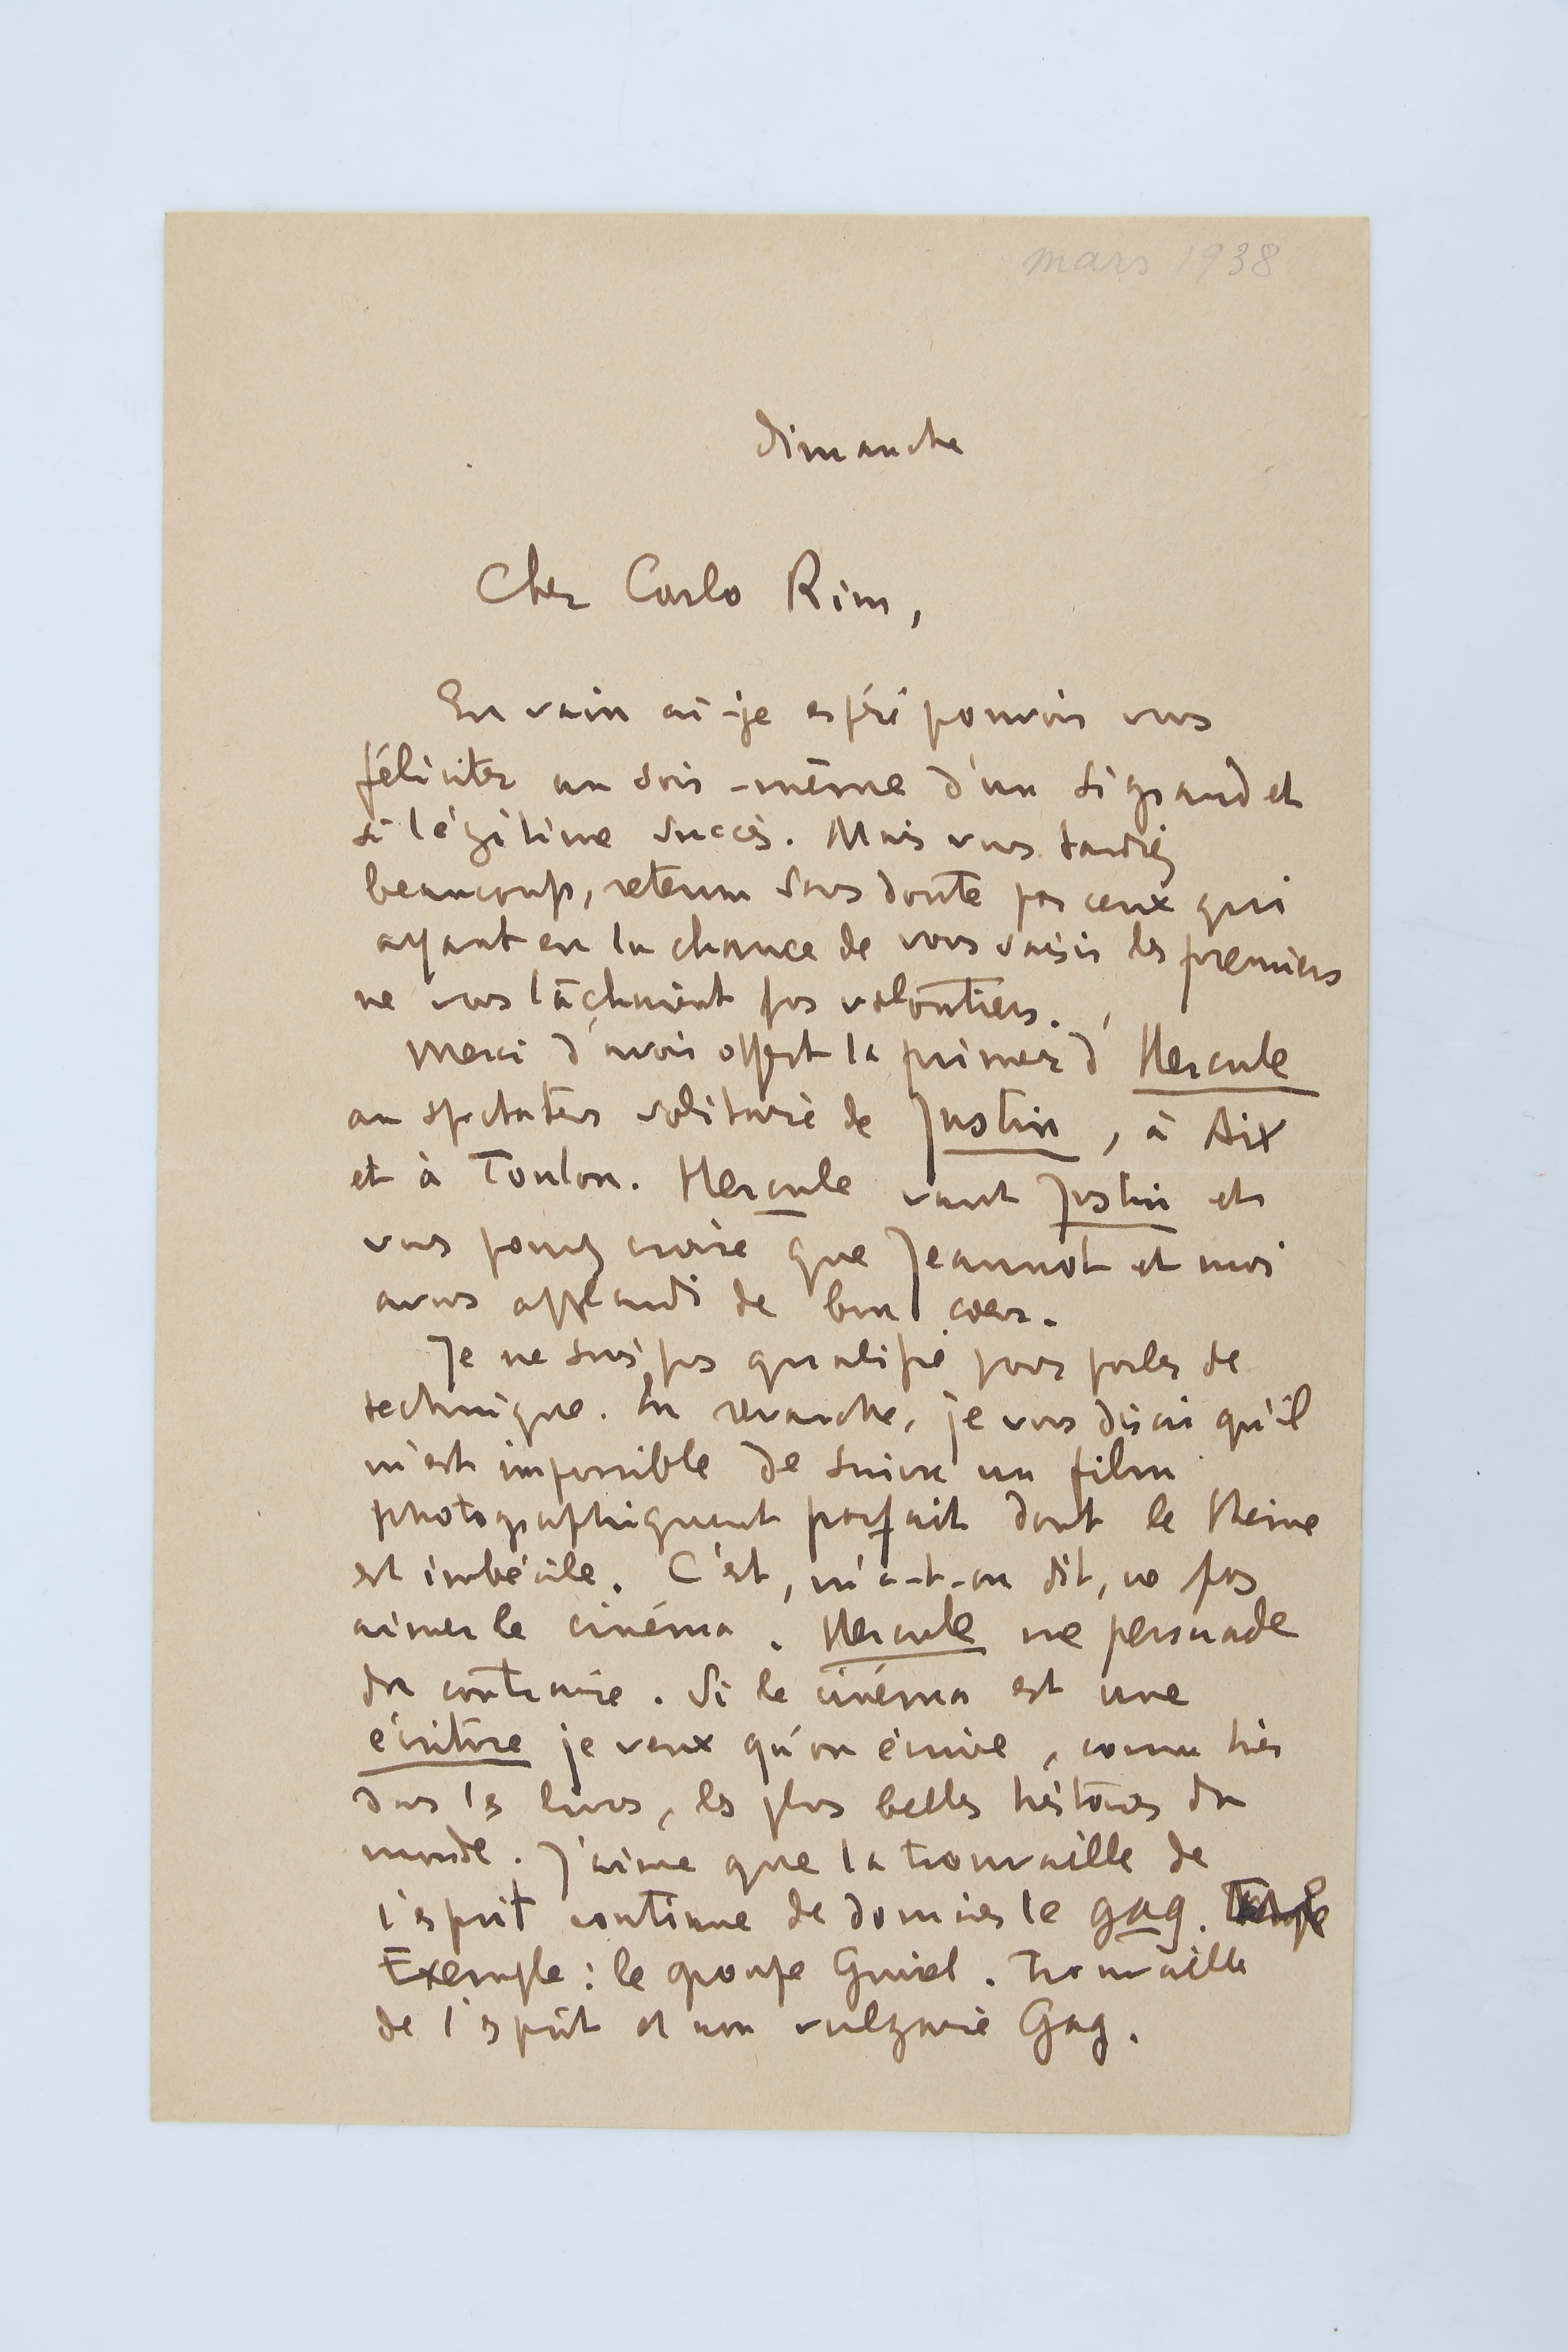 mars 1938
dimanche
Cher Carlo Rim,
En vain ai-je espéré pouvoir vous
féliciter un soir-même d'un si grand et
si légitime succès. Mais vous tardiez
beaucoup, retenu sans doute par ceux qui
ayant eu la chance de vous saisir les premiers
ne vous lâchaient pas volontiers.
Merci d'avoir offert la primeur d'Hercule
au spectateur solitaire de Justin, à Aix
et à Toulon. Hercule vaut Justin et
vous pouvez croire que Jeannot et moi
avons applaudi de bon cœur.
Je ne suis pas qualifié pour parler de
technique. En revanche, je vous dirai qu'il
m'est impossible de suivre un film
photographiquement parfait dont le thème
est imbécile. C'est, m'a-t-on dit, ne pas
aimer le cinéma. Hercule me persuade
du contraire. Si le cinéma est une
écriture je veux qu'on écrive, comme
dans les livres, les plus belles histoires du
monde. J'aime que la trouvaille de
l'esprit continue de dominer le gag.
Exemple : le groupe Trouvaille
de l'esprit et non vulgaire Gag.